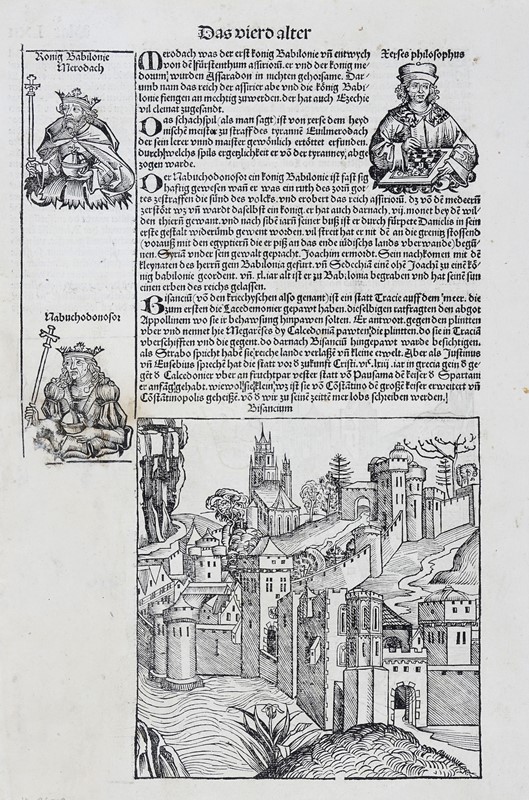 Das vierd alter
König Babilonie
Merodach
Xerses philosophus
Merodach was der erst konig Babilonie vñ entwych
von dē fürstenthum assiriorū. er vnd der konig me
dorum wurden Assaradon in nichten gehorsame. Dar
umb nam das reich der assirier abe vnd die könig Babi
lonie fiengen an mechtig zuwerden. der hat auch Ezechie
vil clemat zugesandt.
Das schachspil (als man sagt) ist von xerse dem heyd
nische meister zu straff des tyrannē Euilmerodach
der sein lerer vnnd maister gewonlich ertöttet erfunden.
durch welchs spils ergezlichkeit er vō der tyranney abge
zogen warde.
Der Nabuchodonosor ein könig Babilonie ist fast sig
hafftig gewesen wañ er was ein ruth des zorn got
tes zestraffen die sünd des volcks. vnd erobert das reich assiriorū. dz vō dē medeern
zerstört wz vñ warde daselbst ein konig. er hat auch darnach. vij. monet bey dē wil
den thiern gewont. vnd nach sibē iarn seiner bůß ist er durch fürpete Danielis in sein
erste gestalt widerümb gewent worden. vil streit hat er mit dē an die grenitz stossend
(vorauß mit den egyptiern die er piß an das ende iüdischs lands vberwande) begū
nen. Syriā vnder sein gewalt gepracht. Joachim ermordt. Sein nachkomen mit dē
kleynaten des herrn gein Babilonia gefürt. vñ Sedechiā eine ohē Joachi zu einē kö
nig babilonie geordent. vñ. rl. iar alt ist er zu Babilonia begraben vnd hat seinē sun
einen erben des reichs gelassen.
Nabuchodonosor
Bisanciū (vō den kriechyschen also genant) ist ein statt Tracie auff dem meer. die
zum ersten die Lacedemonier gepawt haben. dieselbigen ratfragten den abgot
Appollinem wo sie ir behawsung hinpawen solten. Er antwort. gegen den plintten
vber vnd nennet hie Megareses dy Calcedoniā pawten die plintten. do sie in Traciā
vberschifften vnd die gegent. do darnach Bisanciū hingepawt warde besichtigen.
als Strabo spricht habē sie reiche lande verlaßē vñ kleine erwelt. Aber als Justinus
vñ Eusebius sprechē hat die statt vor d zukunft Cristi. vj. iar in grecia gein d ge
gēt d Calcedonier vber an fruchtpar vester statt vō Pausama dē keiser d Spartani
er anfāg gehabt. wiewol sie klein wz ist sie vō Cōstātino dē große keiser erweitert vñ
Cōstātinopolis geheißē. vō d wir zu seinē zeittē mer lobs schreiben werden.
Bisancium